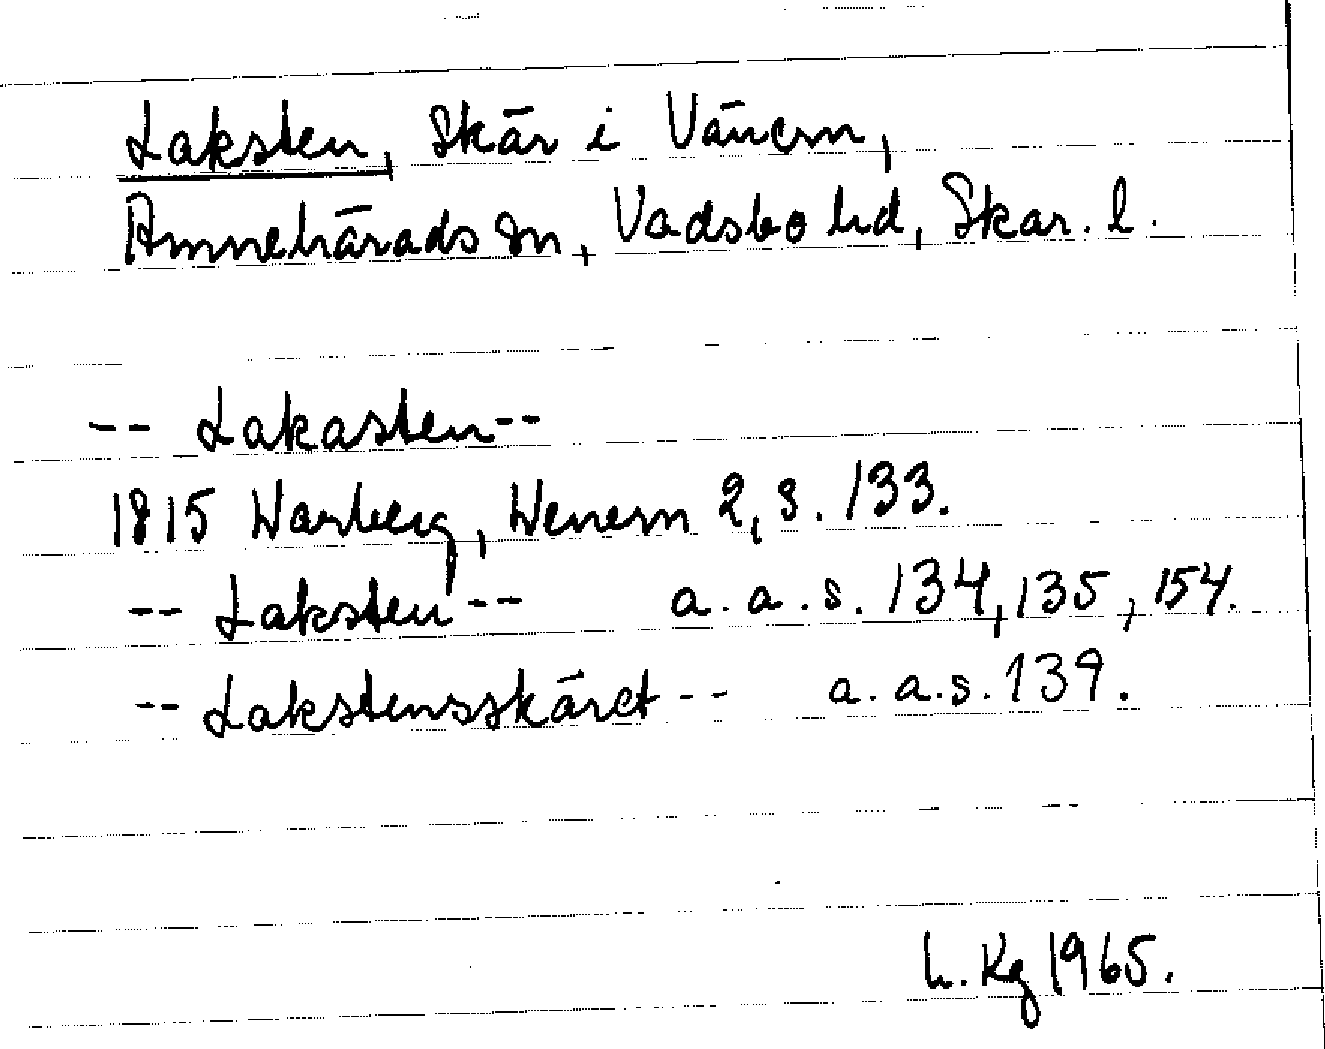 Laksten, Skär i Vänern,
Amnehärads sn, Vadsbo hd, Skar. l.
-- Lakasten --
1815 Warberg, Wenern 2, s. 133.
-- Laksten -- a. a. s. 134, 135, 154.
-- Lakstensskäret -- a. a. s. 139.
h. Kg 1965.